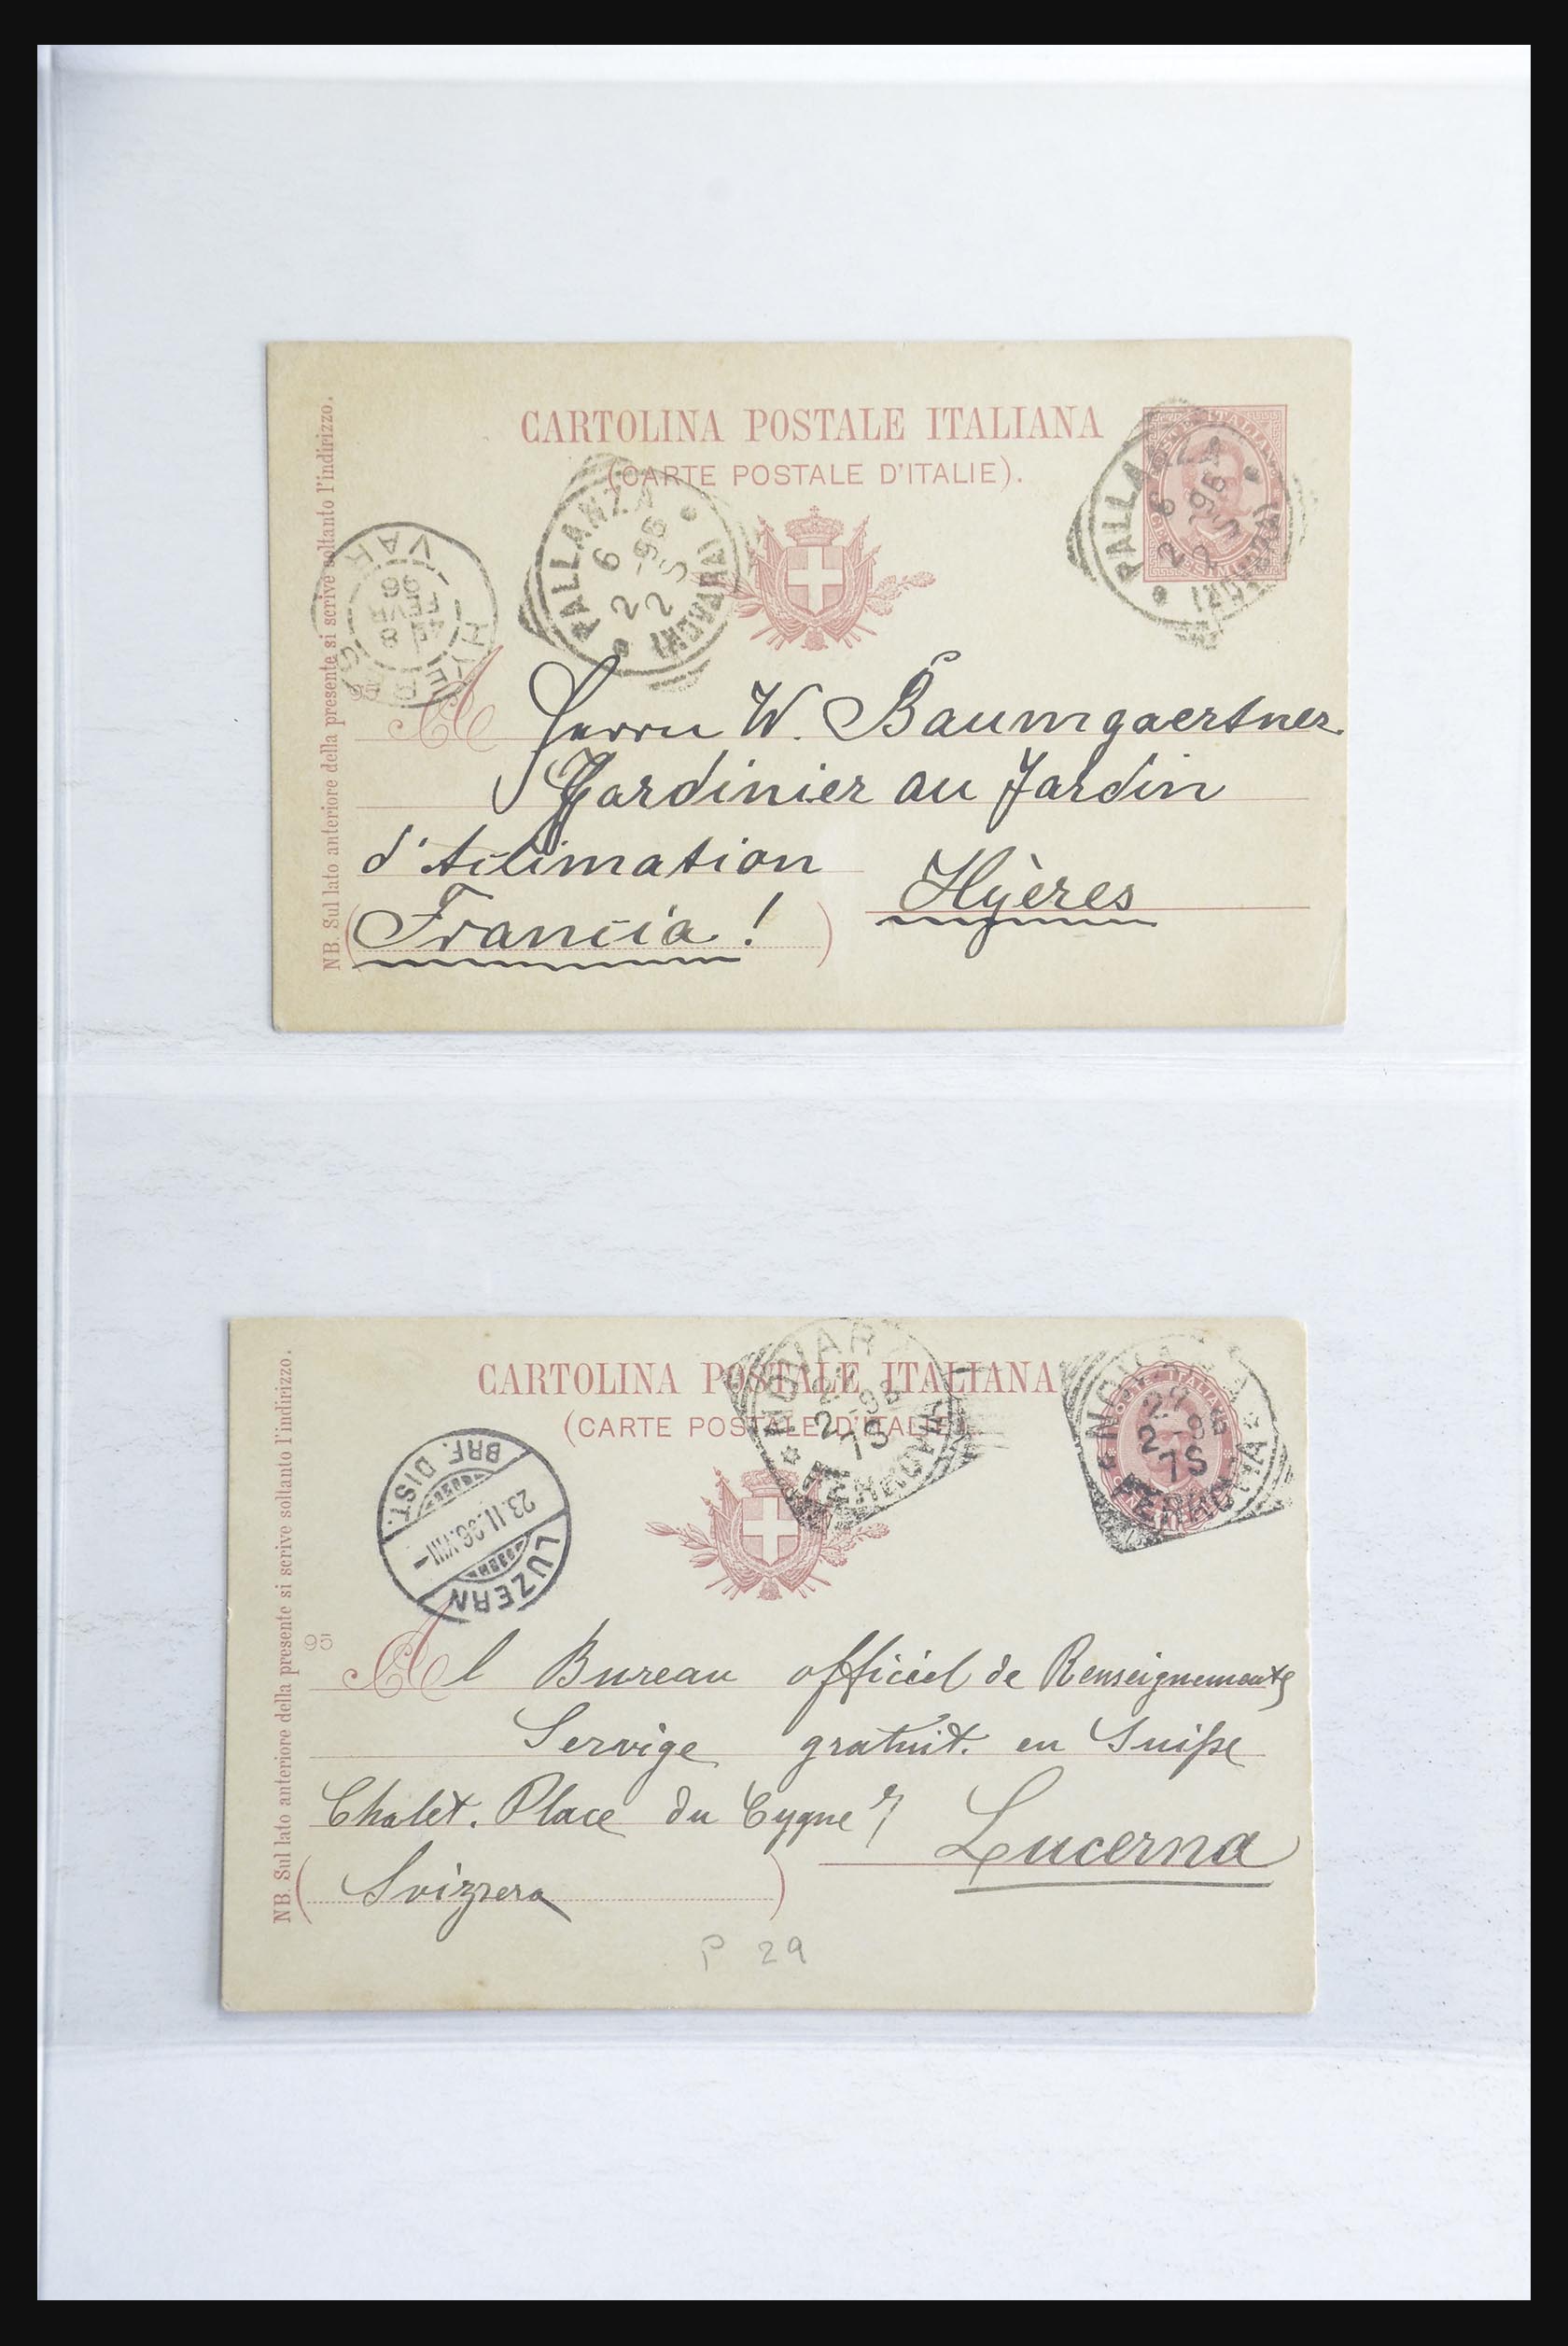 CARTOLINA POSTALE ITALIANA
(CARTE POSTALE D'ITALIE).
NB. Sul lato anteriore della presente si scrive soltanto l'indirizzo.
PALLANZA
6
2 -96
2 S
(NOVARA)
PALLANZA
6
2 -96
2 S
(NOVARA)
HYÈRES
8
FEVR
96
VAR
A Herrn W. Baumgaertner.
Jardinier au Jardin
d'Aclimation
Hyères
(Francia!)
CARTOLINA POSTALE ITALIANA
(CARTE POSTALE D'ITALIE).
NB. Sul lato anteriore della presente si scrive soltanto l'indirizzo.
95
NOVARA
2 -96
7S
FERROVIA
NOVARA
22
2 -96
7S
FERROVIA
LUZERN
23.II.96.VIII-
BRF. DIST.
Al Bureau officiel de Renseignements
Servige gratuit. en Suisse
Chalet. Place du Cygne 7
Lucerna
(Svizzera)
P 29